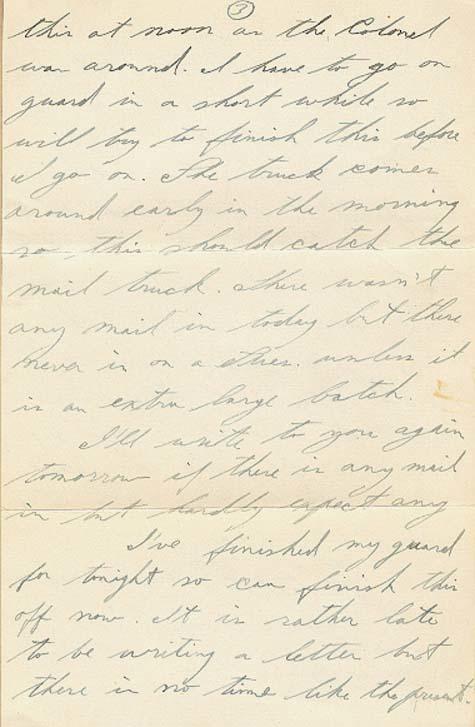 3
this at noon as the Colonel
was around. I have to go on
guard in a short while so
will try to finish this before
I go on. The truck comes
around early in the morning
so, this should catch the
mail truck. There wasn't
any mail in today but there
never is on a Tues. unless it
is an extra large batch.
I'll write to you again
tomorrow if there is any mail
in but hardly expect any
I've finished my guard
for tonight so can finish this
off now. It is rather late
to be writing a letter but
there is no time like the present.